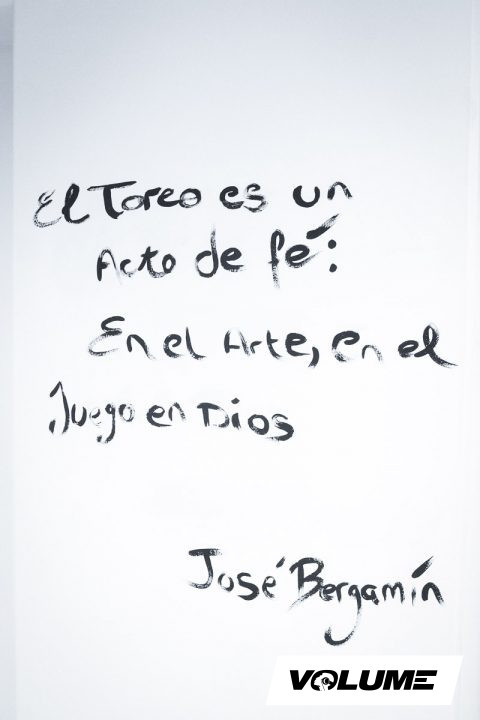 El Toreo es un
Acto de fé:
En el Arte, en el
Juego en Dios
José Bergamín
VOLUME